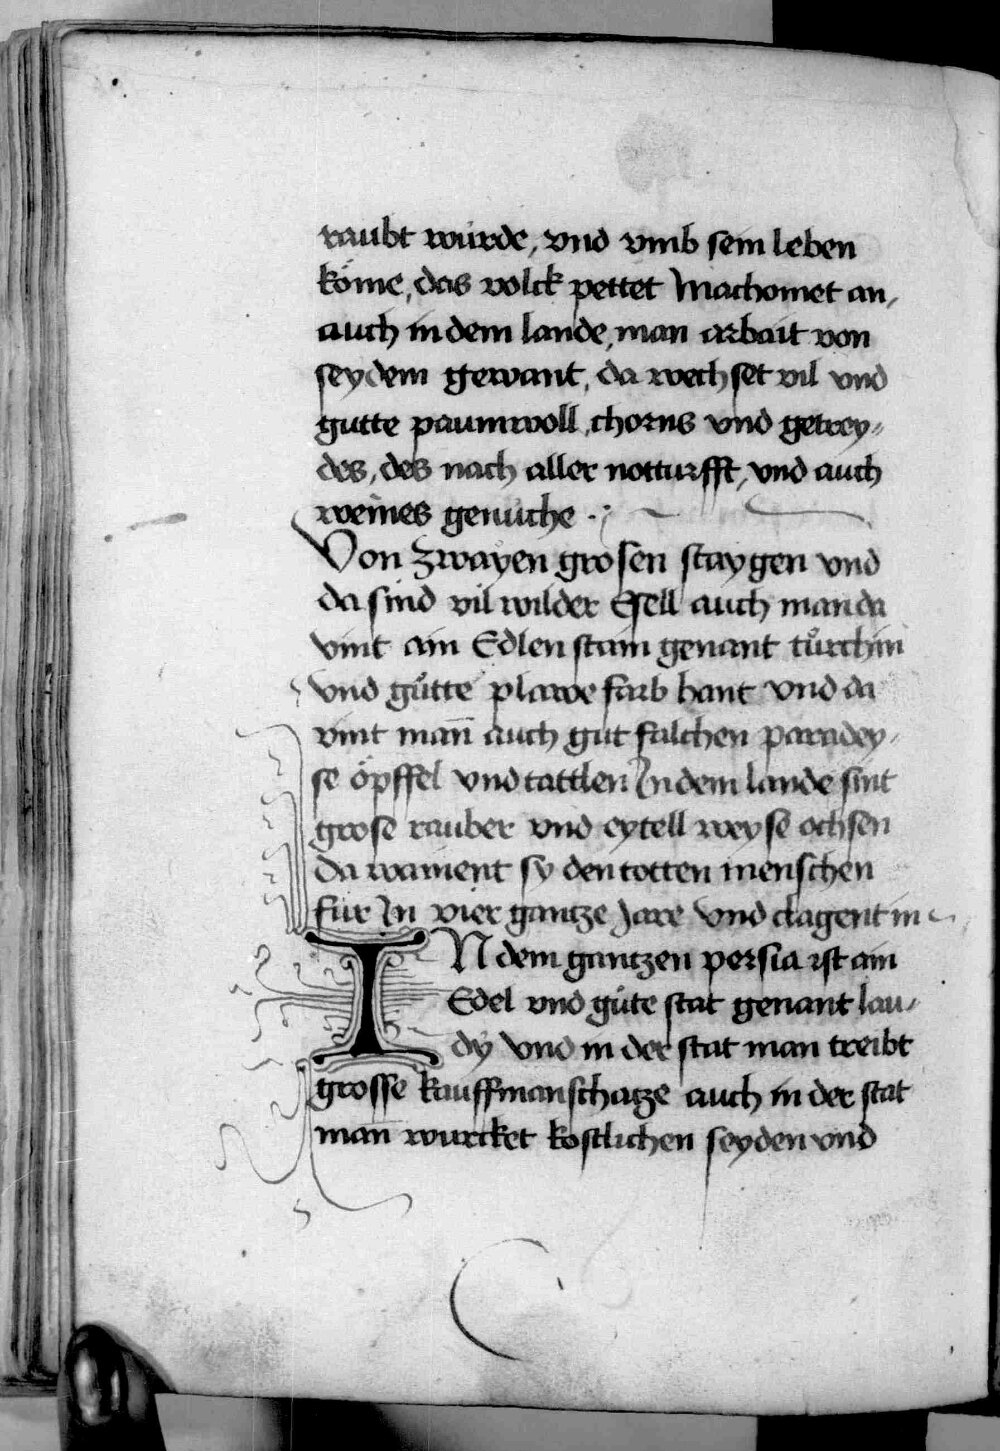 raubt wurde, vnd vmb sein leben
köme, das volck pettet Machomet an,
auch in dem lande, man arbait von
seydem gewant, da wechset vil vnd
gutte paumwoll, chorns vnd getrey⸗
des, des nach aller notturfft, vnd auch
weines genuche
Von zwayen grosen staygen vnd
da sind vil wilder Esell auch man da
vint ain Edlen stain genant tůrchin
vnd gůtte plawe farb hant vnd da
vint man̄ auch gut falchen paradey⸗
se öpffel vnd tattlen In dem lande sint
grose rauber vnd eytell weyse ochsen
da wainent sy den totten menschen
fur In vier gantze Jare vnd clagent in
IN dem gantzen persia ist ain
Edel vnd gůte stat genant lau⸗
dÿ vnd in der stat man treibt
grosse kauffmanschatze auch in der stat
man wurcket kostlichen seyden vnd